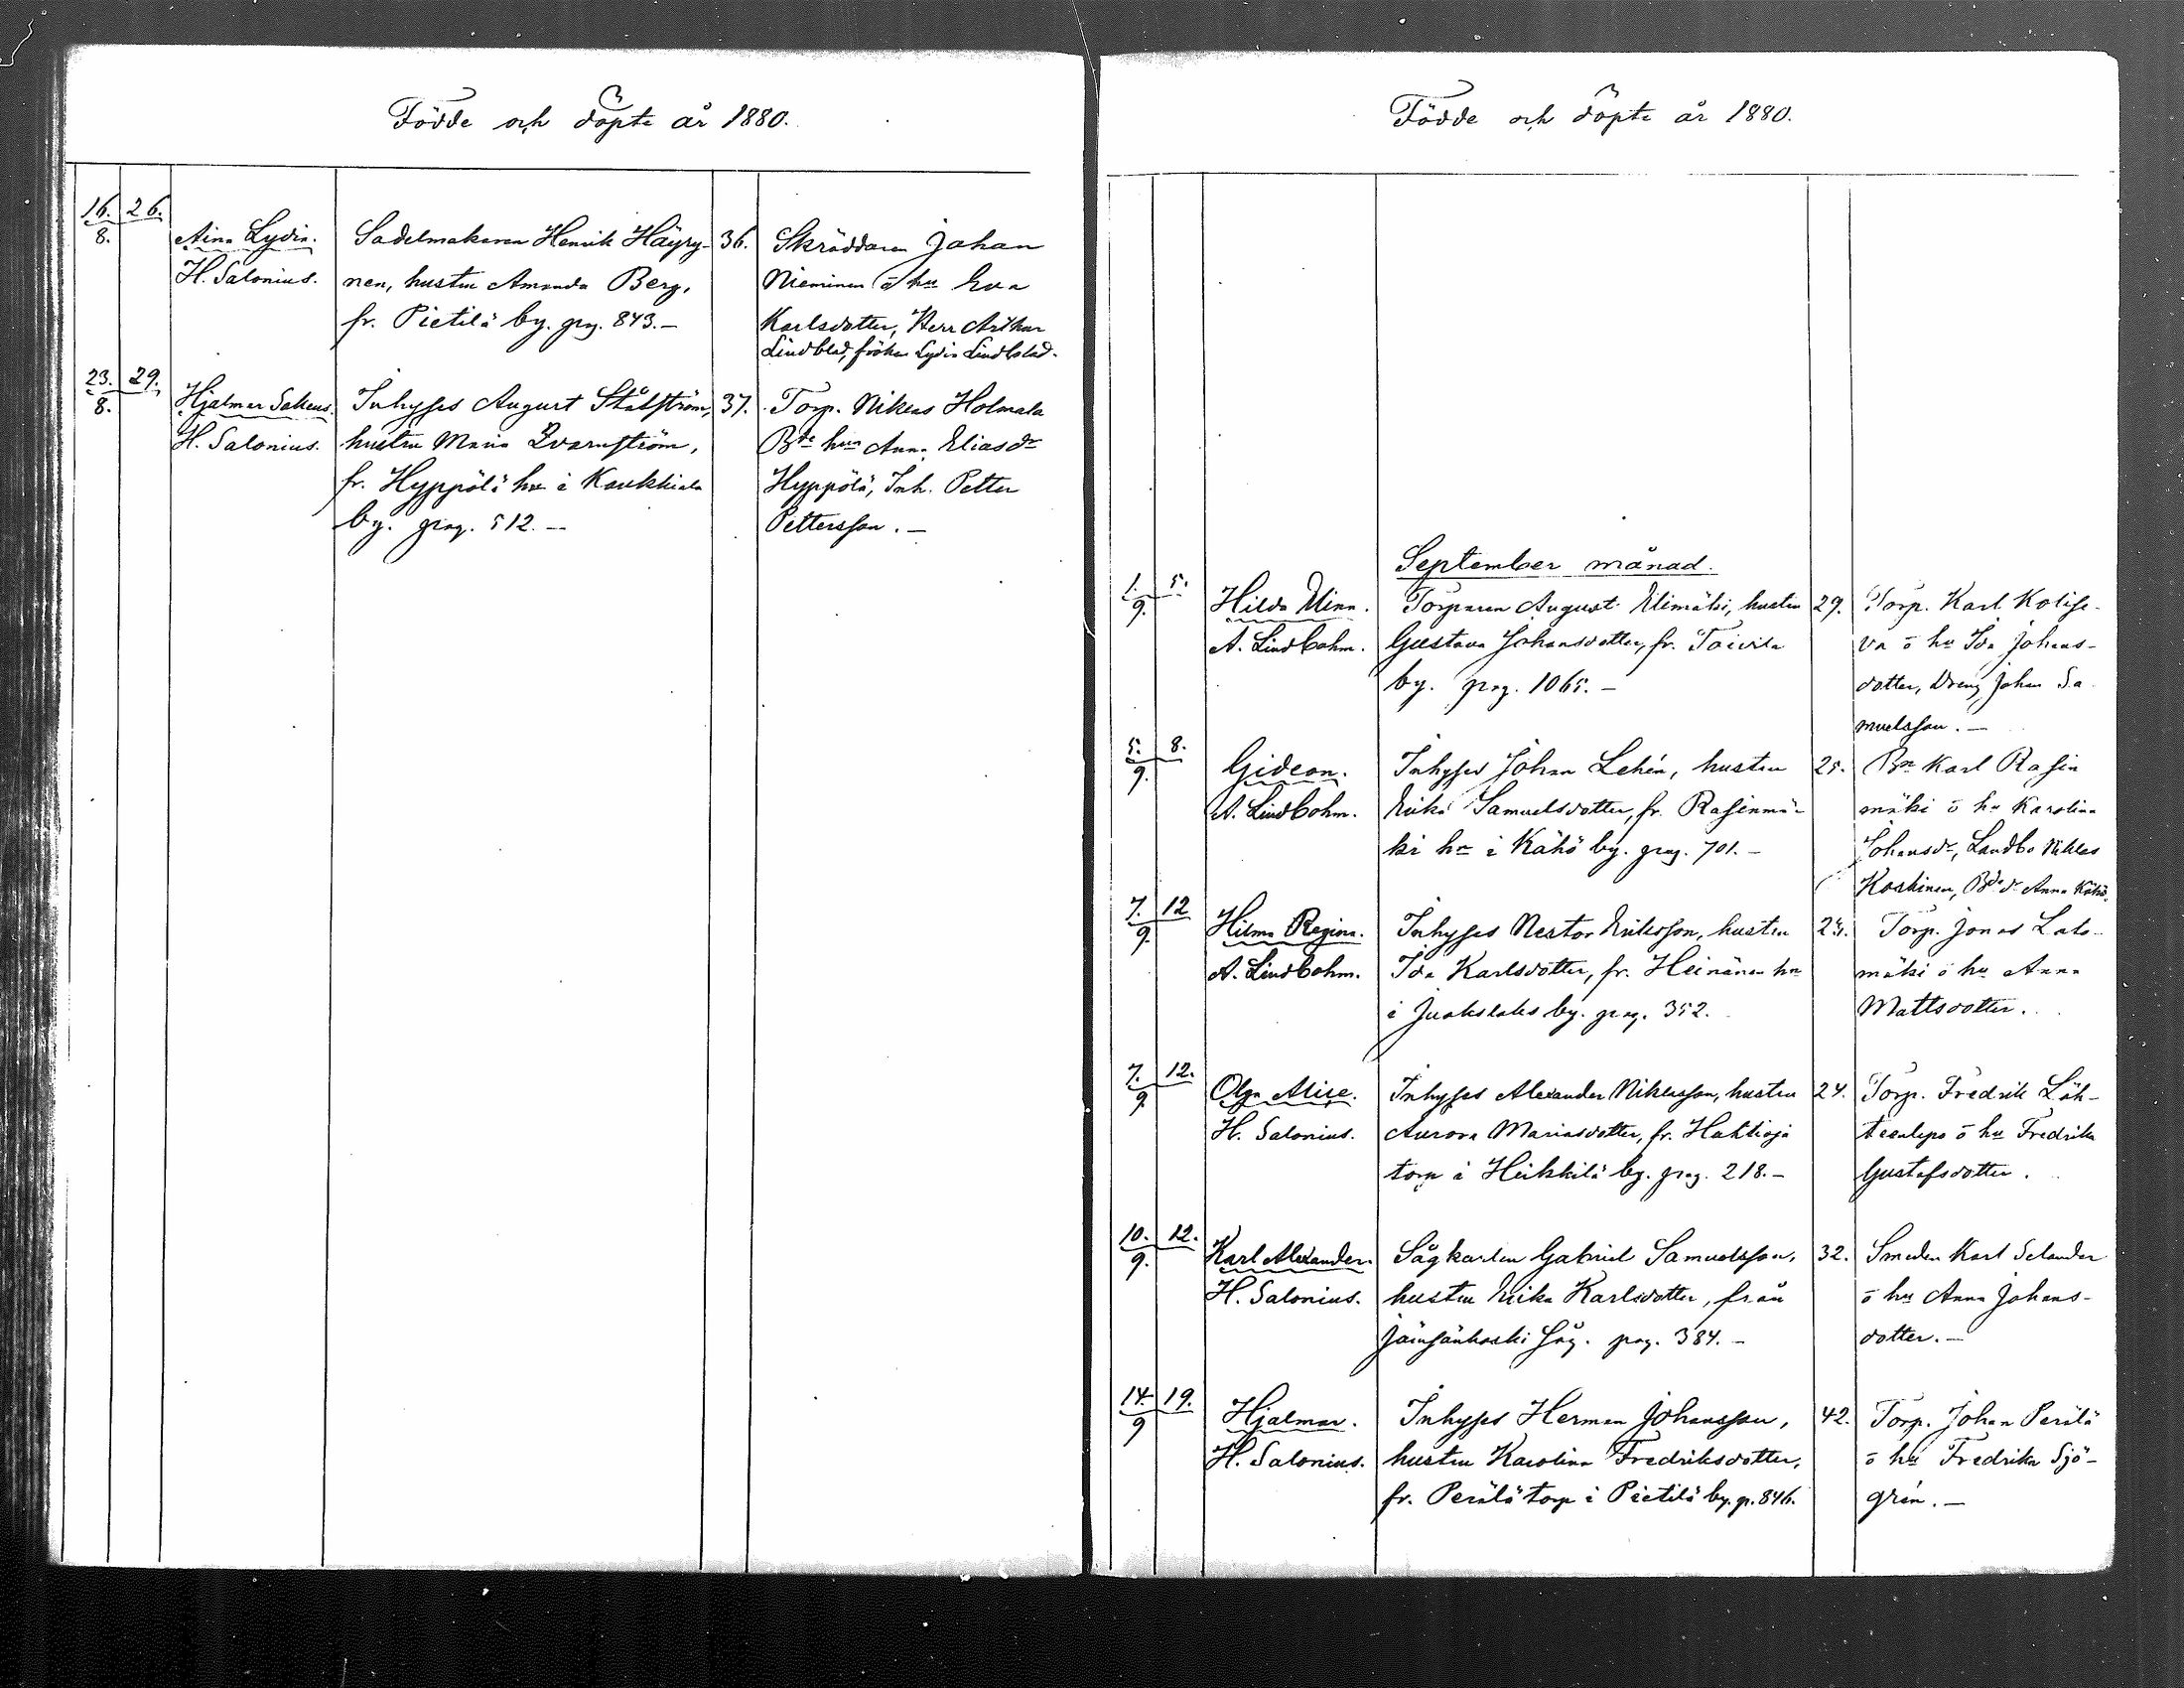 Födde och döpte år 1880.
16. 26.
8.
Aina Lydia.
H. Salonius.
Sadelmakaren Henrik Häyry-
nen, hustru Amanda Berg,
fr. Pietilä by. pag. 843.—
36.
Skräddaren Johan
Nieminen o hu Eva
Karlsdotter, Herr Arthur
Lindblad, fröken Lydia Lindblad.
23. 29.
8.
Hjalmar Sakeus.
H. Salonius.
Inhyses August Stålström,
hustru Maria Qvarnström,
fr. Hyppölä hn i Kaukkiala
by. pag. 512.—
37.
Torp. Niklas Holmala
Bde hun Anna Eliasdr
Hyppölä, Inh. Petter
Pettersson.—
Födde och döpte år 1880.
September månad.
1. 5.
9.
Hilda Elina.
A. Lindbohm.
Torparen August Elimäki, hustru
Gustava Johansdotter, fr. Toivila
by. pag. 1065.—
29.
Torp. Karl
va o hu Ida Johans-
dotter, Dreng Johan Sa
muelsson.—
5. 8.
9.
Gideon.
A. Lindbohm.
Inhyses Johan Lehén, hustru
Erika Samuelsdotter, fr. Rasinmä-
ki hn i Kähö by. pag. 701.—
25.
Bn Karl Rasin
mäki o hu Karolina
Johansdr, Landbo Niklas
Koskinen, Bde dr Anna Kähö.
7. 12
9.
Hilma Regina.
A. Lindbohm.
Inhyses Nestor Eriksson, hustru
Ida Karlsdotter, fr. Heinänen hn
i Juokslaks by. pag. 352.
Torp. Jonas Lato-
mäki o hu Anna
Mattsdotter.
7. 12.
9.
Olga Alise.
H. Salonius.
Inhyses Alexander Niklasson, hustru
Aurora Mariasdotter, fr. Huhtioja
torp i Heikkilä by. pag. 218.—
24.
Torp. Fredrik Läh-
o hu Fredrika
Gustafsdotter.
10. 12.
9.
Karl Alexander.
H. Salonius.
Sågkarlen Gabriel Samuelsson,
hustru Erika Karlsdotter, från
Jämsänkoski såg. pag. 384.—
32.
Smeden Karl Selander
o hu Anna Johans-
dotter.—
14. 19.
9
Hjalmar.
H. Salonius.
Inhyses Herman Johansson,
hustru Karolina Fredriksdotter,
fr. Perälä torp i Pietilä by. p. 846.
42.
Torp. Johan Perälä
o hu Fredrika Sjö-
grén.—